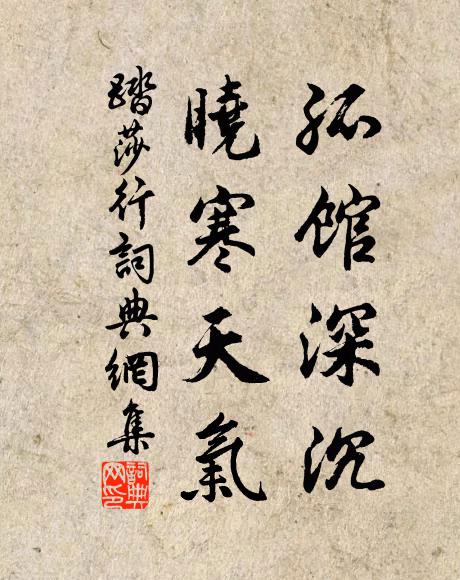 孤館深沉
曉寒天氣
踏莎行詞典網集
詞典網印